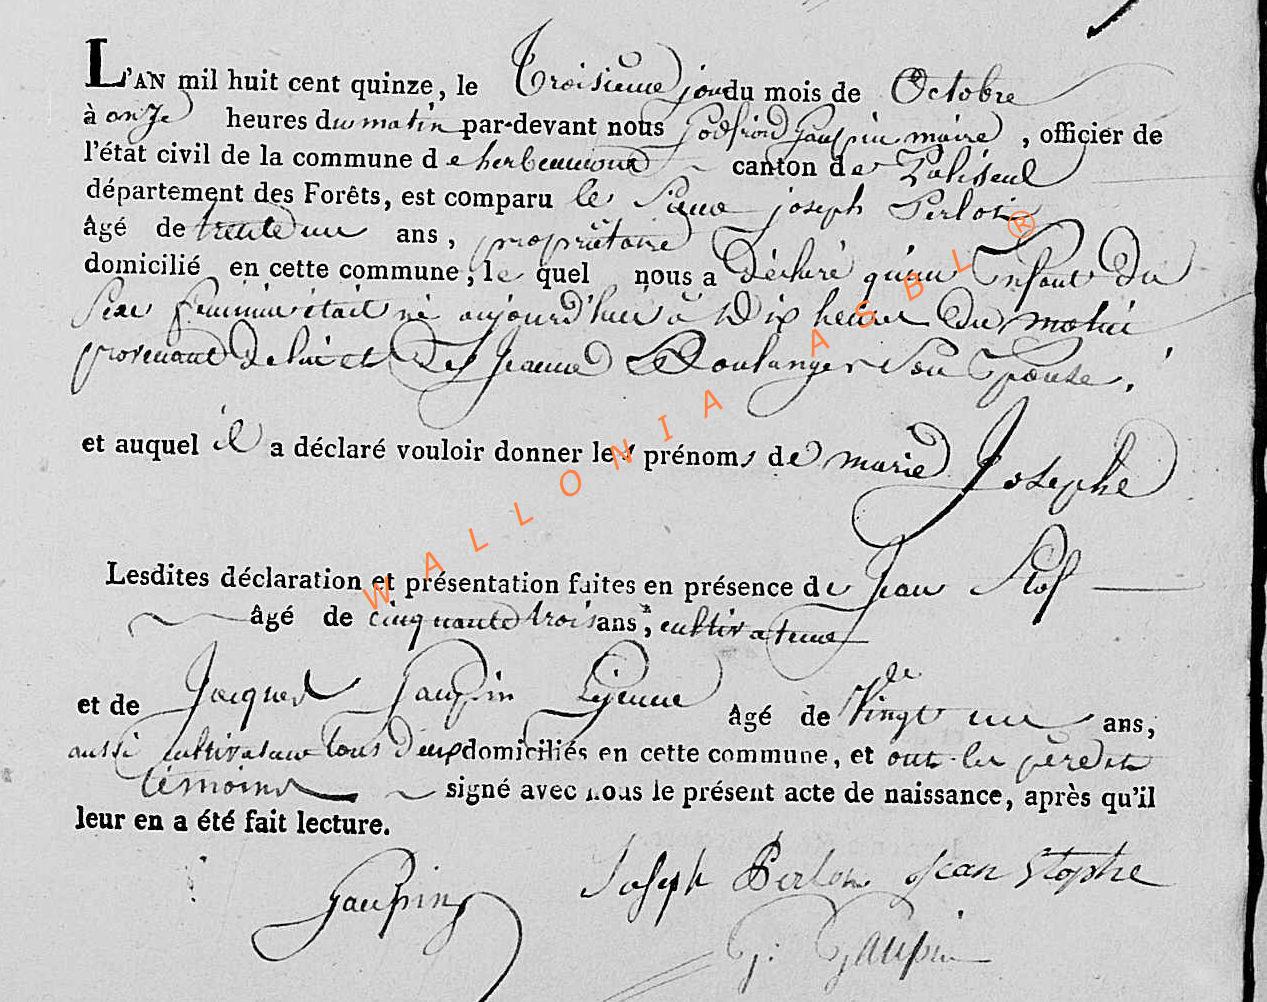 L'AN mil huit cent quinze, le Troisieme jour du mois de Octobre
à onze heures du matin par-devant nous Godfroid Gaupin maire, officier de
l'état civil de la commune de herbeumont canton de Paliseul
département des Forêts, est comparu le Sieur joseph Perlot
âgé de trente un ans, propriétaire
domicilié en cette commune, le quel nous a Déclaré qu'un Enfant Du
Sexe feminin était né aujourd'hui à Dix heures Du matin
provenant De lui et De Jeanne Boulanger Son Epouse.
et auquel il a déclaré vouloir donner les prénoms de marie Josephe
Lesdites déclaration et présentation faites en présence de Jean Stof
âgé de cinquante trois ans, cultivateur
et de Jacques Gaupin Lejeune âgé de Vingt un ans,
de
aussi cultivateur tous Deux domiciliés en cette commune, et ont les père et
témoins signé avec nous le présent acte de naissance, après qu'il
leur en a été fait lecture.
Gaupin Joseph Perlot Jean Stophe
J: Gaupin
WALLONIA ASBL ®